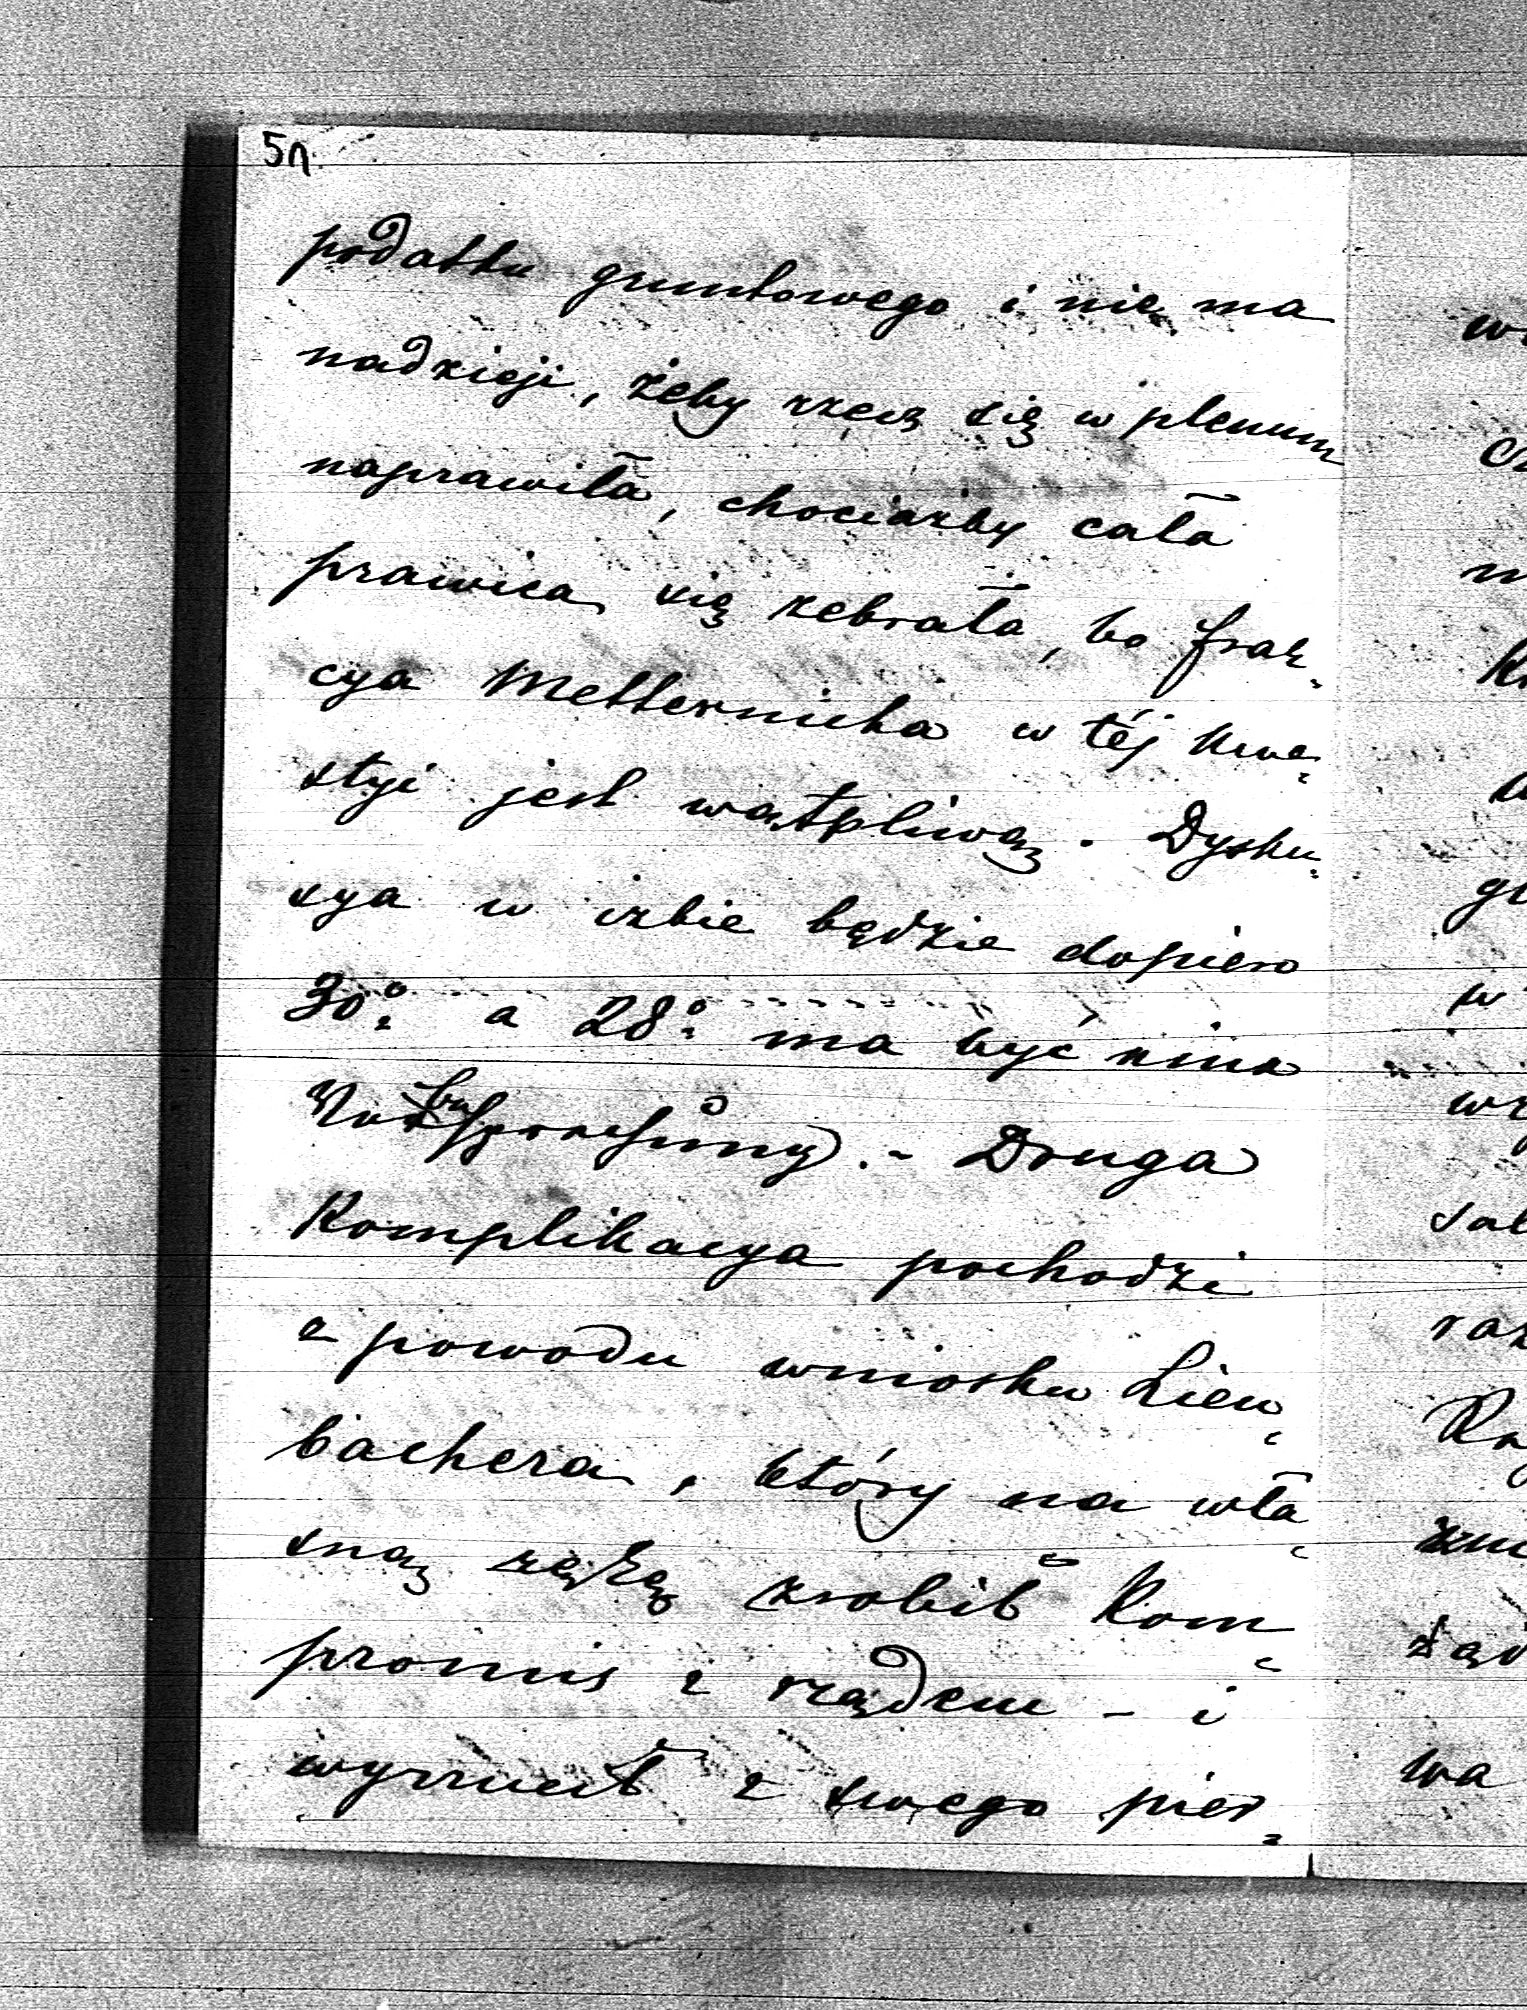 57
podatku gruntowego i nie ma
nadzieji, żeby rzecz się w plenum
naprawiła, chociażby cała
prawica się zebrała, bo frak-
cya Metternicha w téj kwe-
styi jest wątpliwą. Dysku-
sya w izbie będzie dopiero
30º a 28º ma być
Vorbesprechung. - Druga
Komplikacya pochodzi
z powodu wniosku Lien-
bachera, który na wła-
sną rękę zrobił Kom-
promis z rządem - i
wyrzucił z swego pier-